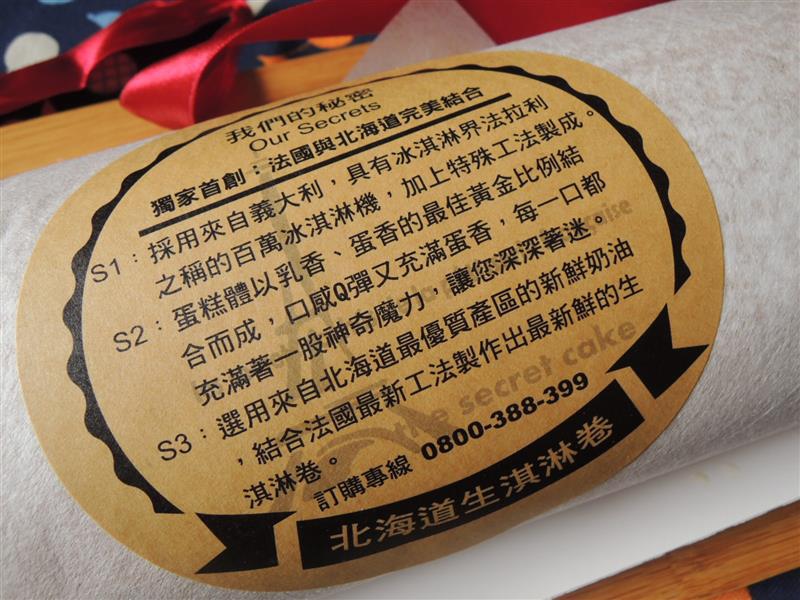 我們的秘密
Our Secrets
獨家首創：法國與北海道完美結合
S1：採用來自義大利，具有冰淇淋界法拉利
之稱的百萬冰淇淋機，加上特殊工法製成。
S2：蛋糕體以乳香、蛋香的最佳黃金比例結
合而成，口感Q彈又充滿蛋香，每一口都
充滿著一股神奇魔力，讓您深深著迷。
S3：選用來自北海道最優質產區的新鮮奶油
，結合法國最新工法製作出最新鮮的生
淇淋卷。
the secret cake
訂購專線 0800-388-399
北海道生淇淋卷